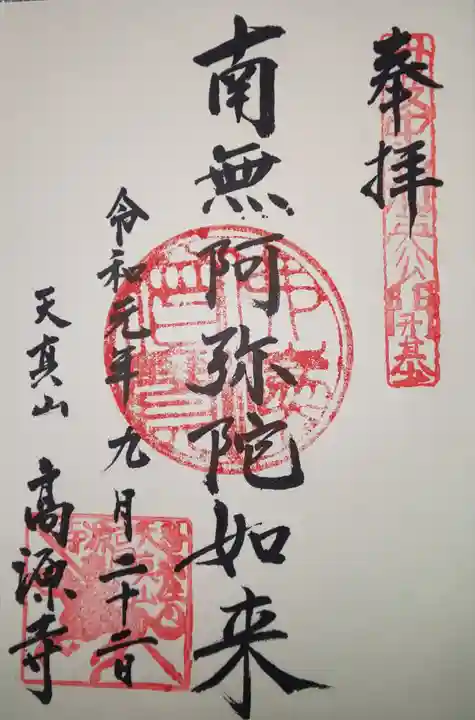 奉拝
南無阿弥陀如来
令和元年九月二十二日
天真山 高源寺